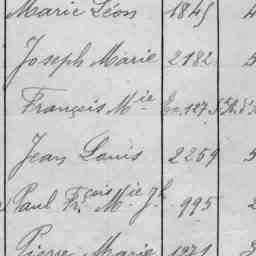 Marie Léon 1845 4
Joseph Marie 2182 5
François Mie
Jean Louis 2259 5
Paul Frçois Mie Jh 995 2
Pierre Marie 1871